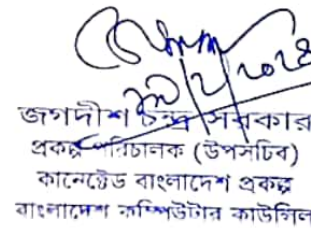 জগদীশ চন্দ্র সরকার
প্রকল্প পরিচালক (উপসচিব)
কানেক্টেড বাংলাদেশ প্রকল্প
বাংলাদেশ কম্পিউটার কাউন্সিল